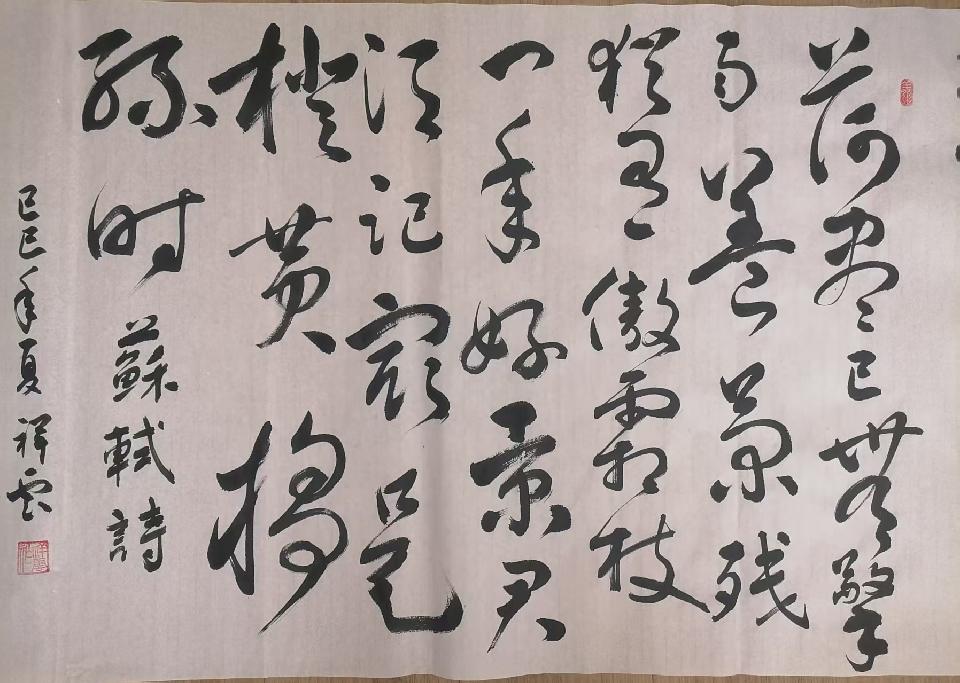 荷尽已無擎
雨蓋菊残
犹有傲霜枝
一年好景君
须记最是
橙黄橘
绿时 蘇軾詩
己巳年夏祥雲